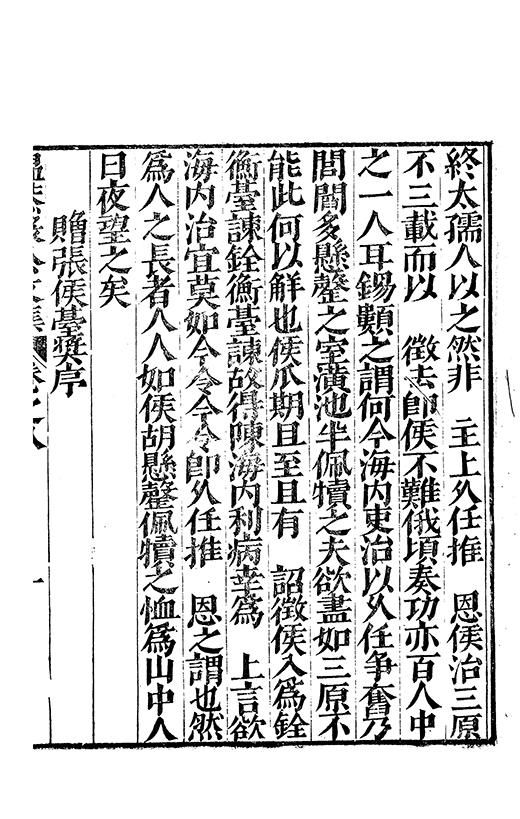 終太孺人以之然非　主上久任推　恩侯治三原
不三載而以　徵去卽侯不難俄頃奏功亦百人中
之一人耳錫類之謂何今海内吏治以久任爭奮乃
閭閻多懸罄之室潢池半佩犢之夫欲盡如三原不
能此何以觧也侯瓜期且至且有　詔徵侯入爲銓
衡臺諫銓衡臺諫故得陳海内利病幸爲　上言欲
海内治宜莫如令令令令卽久任推　恩之謂也然
爲人之長者人人如侯胡懸罄佩犢之恤爲山中人
日夜望之矣
贈張侯臺獎序
卷之八　一